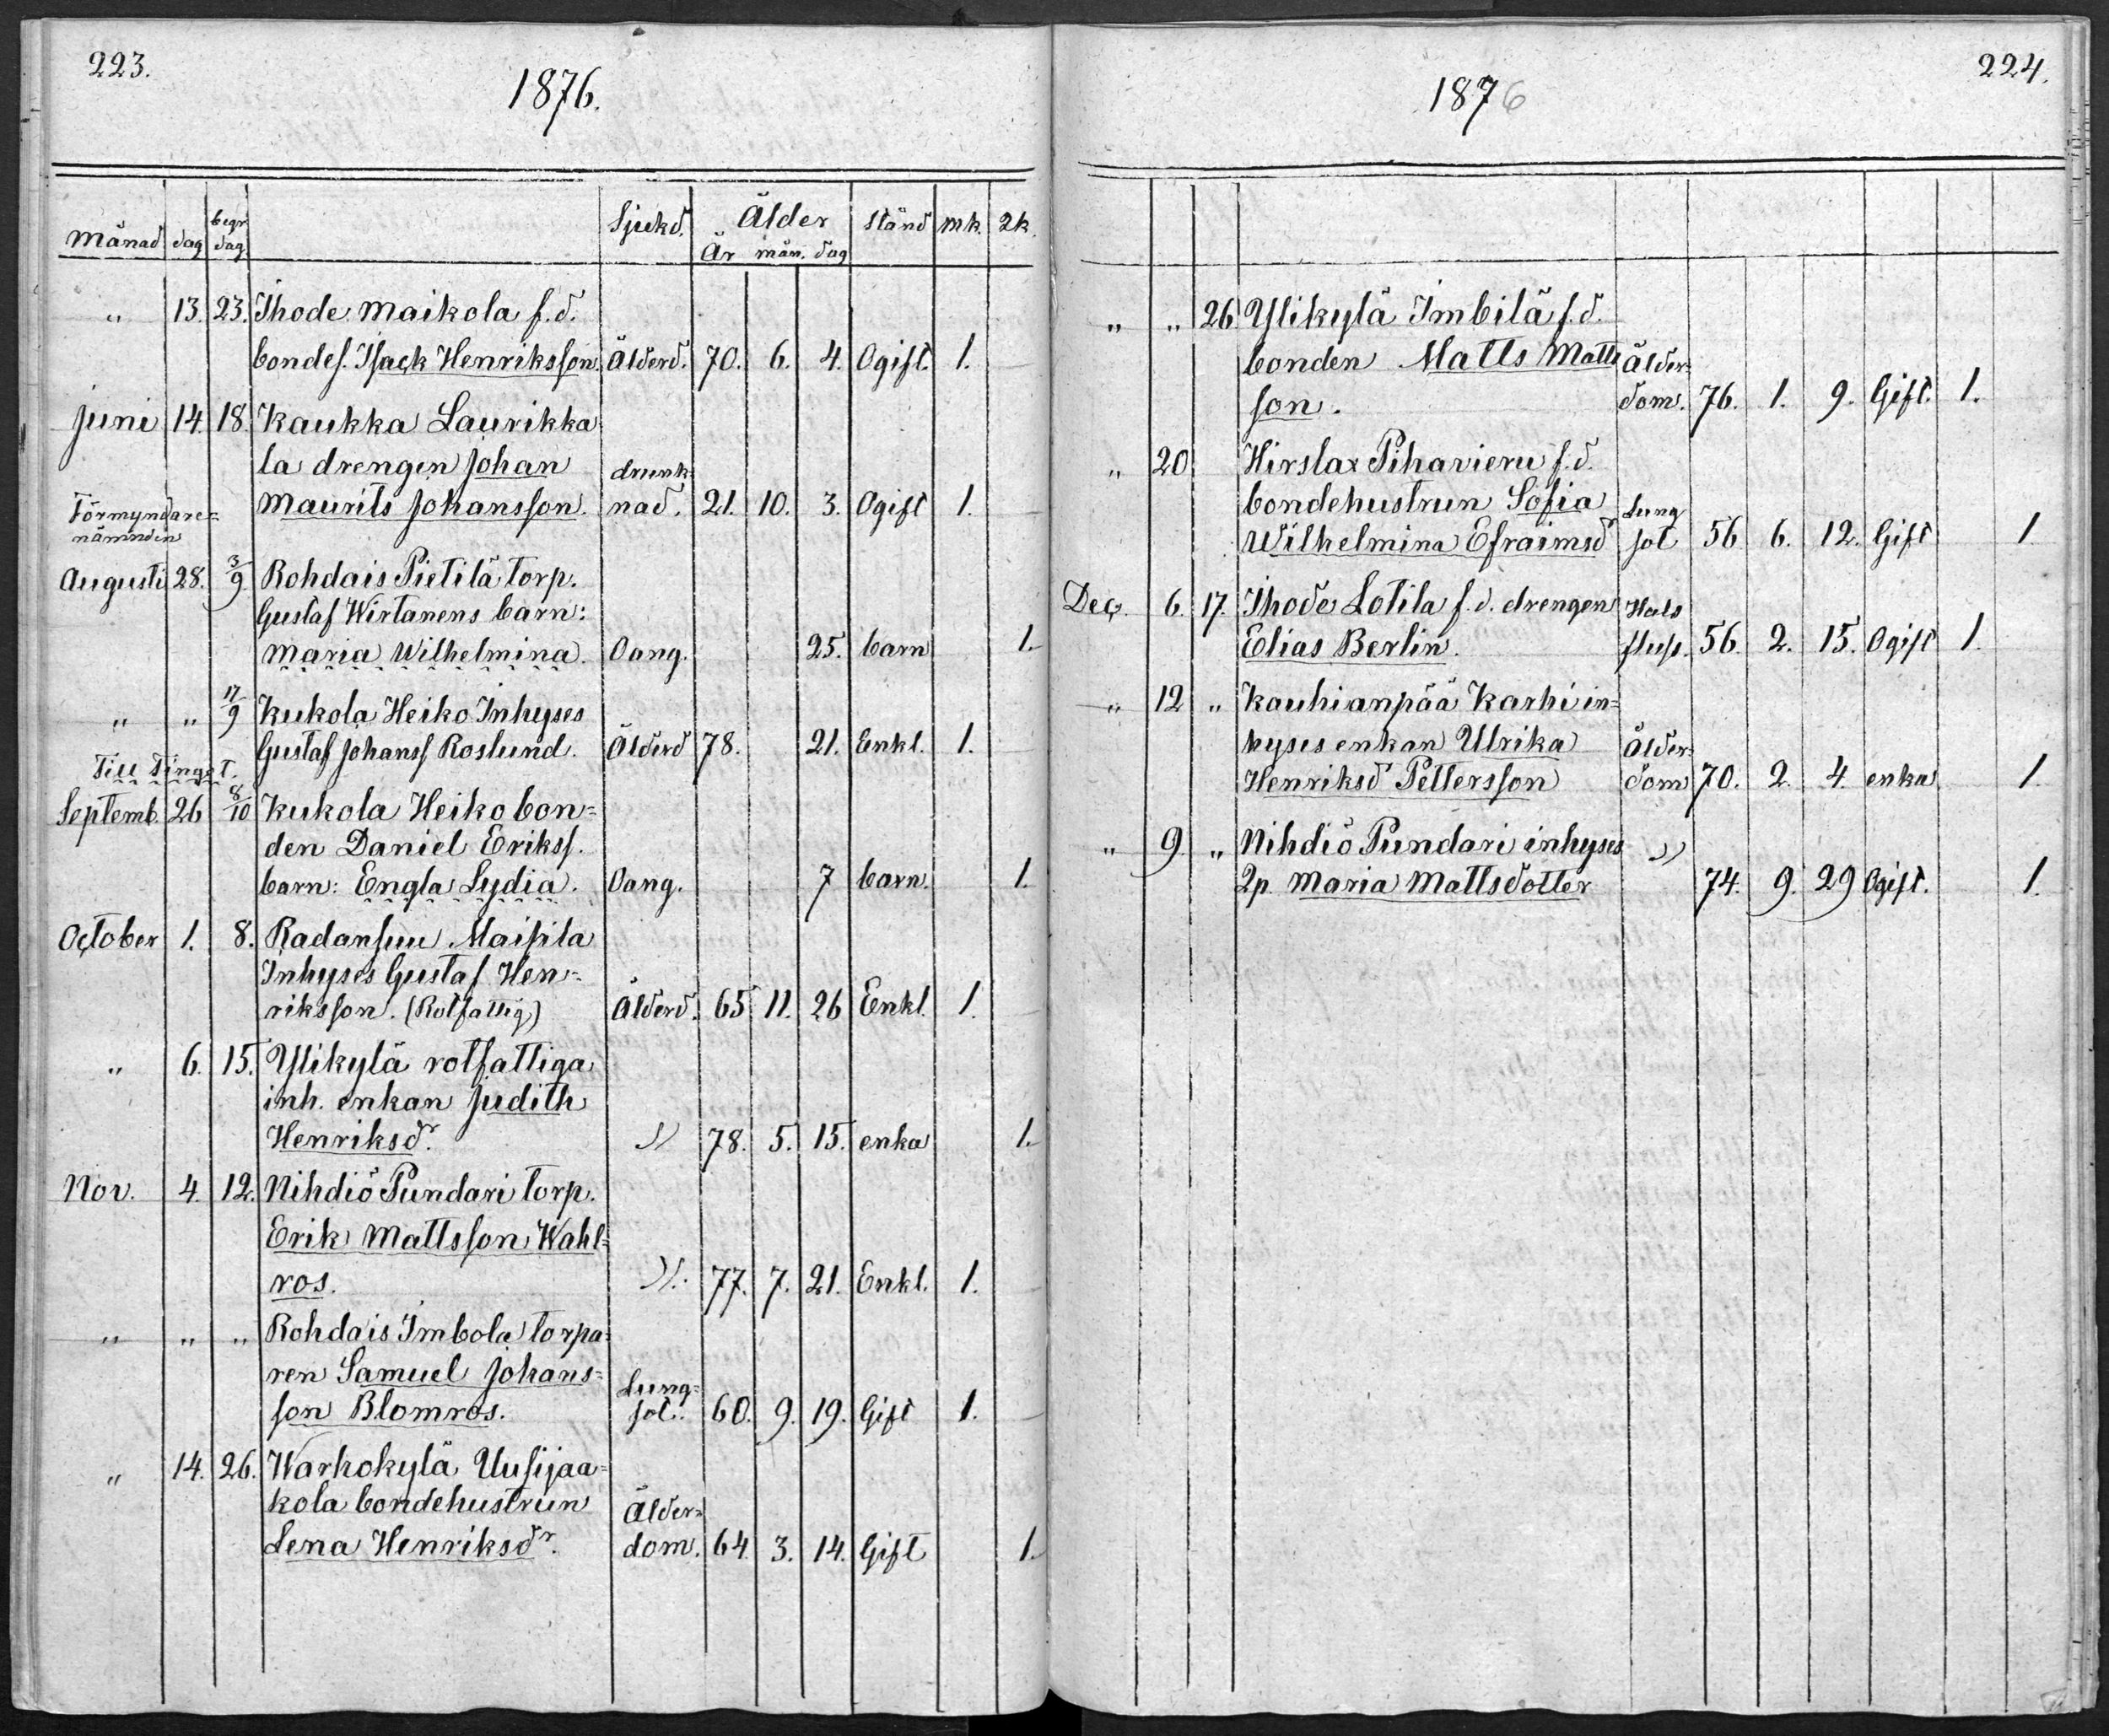 223.
1876.
Månad dag begr dag Sjukd. Ålder År mån. dag Stånd mk. 2k.
" 13. 23. Ihode Maikola f.d.
bondes. Isack Henriksson. Ålderd. 70. 6. 4. Ogift. 1.
Juni 14. 18. Kaukka Laurikka
la drengen Johan drunk-
Maurits Johansson. nad. 21. 10. 3. Ogift 1.
Förmyndare=
nämnden
Augusti 28. 3/9. Rohdais Pietilä torp.
Gustaf Wirtanens barn:
Maria Wilhelmina. Oang. 25. barn 1.
" " 17/9 Kukola Heiko Inhyses
Gustaf Johanss Roslund. Ålderd 78. 21. Enkl. 1.
Till Tinget.
Septemb. 26 8/10 Kukola Heiko bon=
den Daniel Erikss.
barn: Engla Lydia. Oang. 7 barn. 1.
October 1. 8. Radansuu Maisila
Inhyses Gustaf Hen=
riksson. (Rotfattig) Ålderd. 65 11. 26 Enkl. 1.
" 6. 15. Ylikylä rotfattiga
inh. enkan Judith
Henriksdr. " 78. 5. 15. enka 1.
Nov. 4. 12. Nihdiö Pundari torp.
Erik Mattsson Wahl=
ros. ". 77. 7. 21. Enkl. 1.
" " " Rohdais Imbola torpa=
ren Samuel Johans= Lung=
son Blomros. sot. 60. 9. 19. Gift 1.
" 14. 26. Warhokylä Uusijaa=
kola bondehustrun Ålder=
Lena Henriksdr. dom. 64 3. 14. Gift 1.
224.
1876
" " 26 Ylikylä Imbilä f.d.
bonden Matts Matts ålder=
son. dom. 76. 1. 9. Gift. 1.
" 20. Hirslax Pihavieru f.d.
bondehustrun Sofia Lung
Wilhelmina Efraimsd sot 56 6. 12. Gift 1
Dec. 6. 17. Ihode Lotila f.d. drengen Hals
Elias Berlin. flus. 56. 2. 15. Ogift 1.
" 12 " Kauhianpää Karhi in=
hyses enkan Ulrika Ålder=
Henriksd Pettersson dom 70. 2. 4. enka 1.
" 9. " Nihdiö Pundari inhyses "
2p. Maria Mattsdotter 74. 9. 29 Ogift. 1.